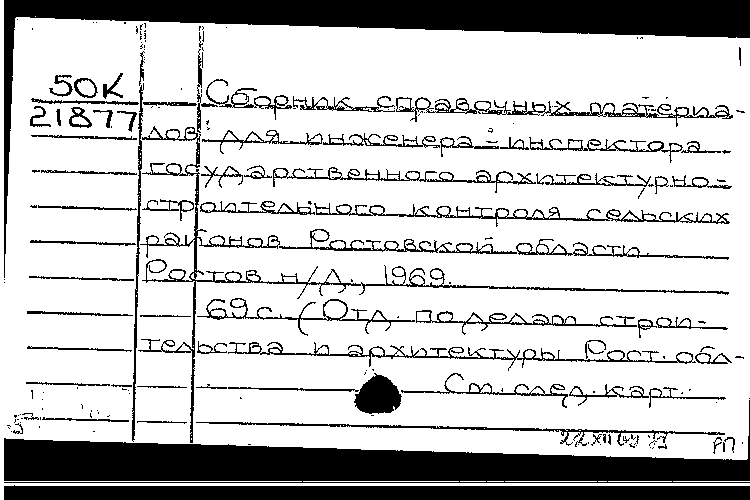 50К
21877
Сборник справочных материа-
лов для инженера-инспектора
государственного архитектурно-
строительного контроля сельских
районов Ростовской области.
Ростов н/Д., 1969.
69с. (Отд. по делам строи-
тельства и архитектуры Рост. обл-
См. след. карт.
РП